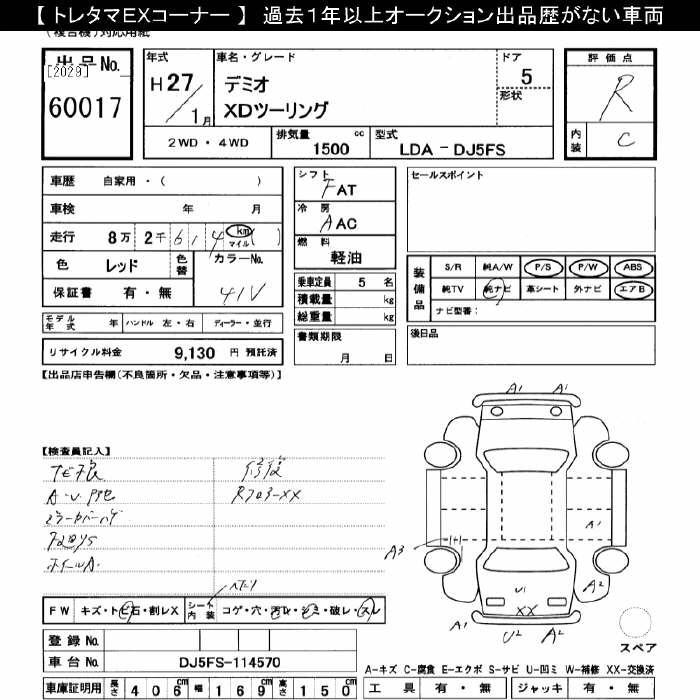 【 トレタマEXコーナー 】 過去１年以上オークション出品歴がない車両
(複合機)対応用紙
出品No.
[2029]
60017
年式
H 27
1月
車名・グレード
デミオ
XDツーリング
ドア
5
形状
評価点
R
内装
C
2WD ・ 4WD
排気量
cc
1500
型式
LDA − DJ5FS
車歴 自家用 ・ ( )
車検 年 月
走行 8万 2千 6 1 4 km マイル ( )
色 レッド
色替
カラーNo.
41V
保証書 有 ・ 無
シフト
FAT
冷房
AAC
燃料
軽油
セールスポイント
乗車定員 5 名
積載量 kg
総重量 kg
装備品
S/R 純A/W P/S P/W ABS
純TV 純ナビ 革シート 外ナビ エアB
ナビ型番：
モデル年式 年 ハンドル 左・右 ディーラー・並行
書類期限
月 日
後日品
リサイクル料金 9,130 円 預託済
【出品店申告欄(不良箇所・欠品・注意事項等)】
【検査員記入】
ナビ不良
修復
R703-XX
A1 A1
A1
A3
A2
U1
XX
A1
U2 A2
スペア
FW キズ・トビ石・割レX
シート内装
コゲ・穴・汚レ・シミ・破レ・スレ
登録 No.
車台 No. DJ5FS-114570
A−キズ C−腐食 E−エクボ S−サビ U−凹ミ W−補修 XX−交換済
車庫証明用 長さ 406cm 幅 169cm 高さ 150cm
工具 有 ・ 無 ジャッキ 有 ・ 無